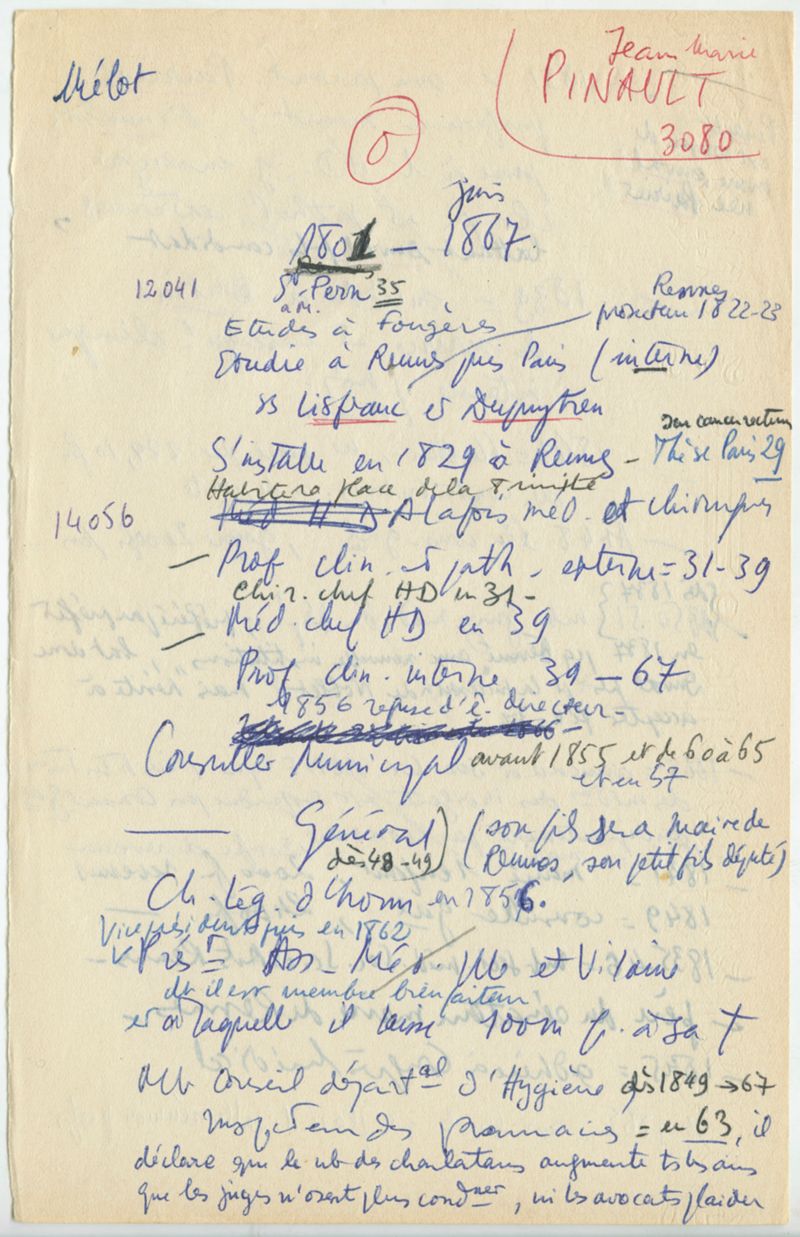 Mélot
Jean Marie
PINAULT
3080
0
juin
1801 – 1867.
12041
St Pern 35
Rennes
prosecteur 1822-23
Etudes à Fougères
Etudie à Rennes puis Paris (interne)
ss Lisfranc et Dupuytren
S'installe en 1829 à Rennes – Thèse Paris 29
Habitera place de la Trinité
14056
A la fois méd. et chirurgien
– Prof clin. & path. externe = 31-39
Chir. chef HD en 31 –
– Méd. chef HD en 39
Prof clin. interne 39 – 67
1856 refuse d'ê. directeur –
Conseiller Municipal avant 1855 et de 60 à 65
et en 57
——— Général) (son fils sera Maire de
dès 48-49 Rennes, son petit fils député)
Ch. Lég. d'honn en 1856.
Vice président puis en 1862
Prést Ass. Méd. Ille et Vilaine
dt il est membre bienfaiteur
et à laquelle il laisse 100m f. à sa †
Mb Conseil départal d'Hygiène dès 1849 → 67
Inspecteur des pharmacies = en 63, il
déclare que le nb des charlatans augmente ts les ans
que les juges n'osent plus condner, ni les avocats plaider